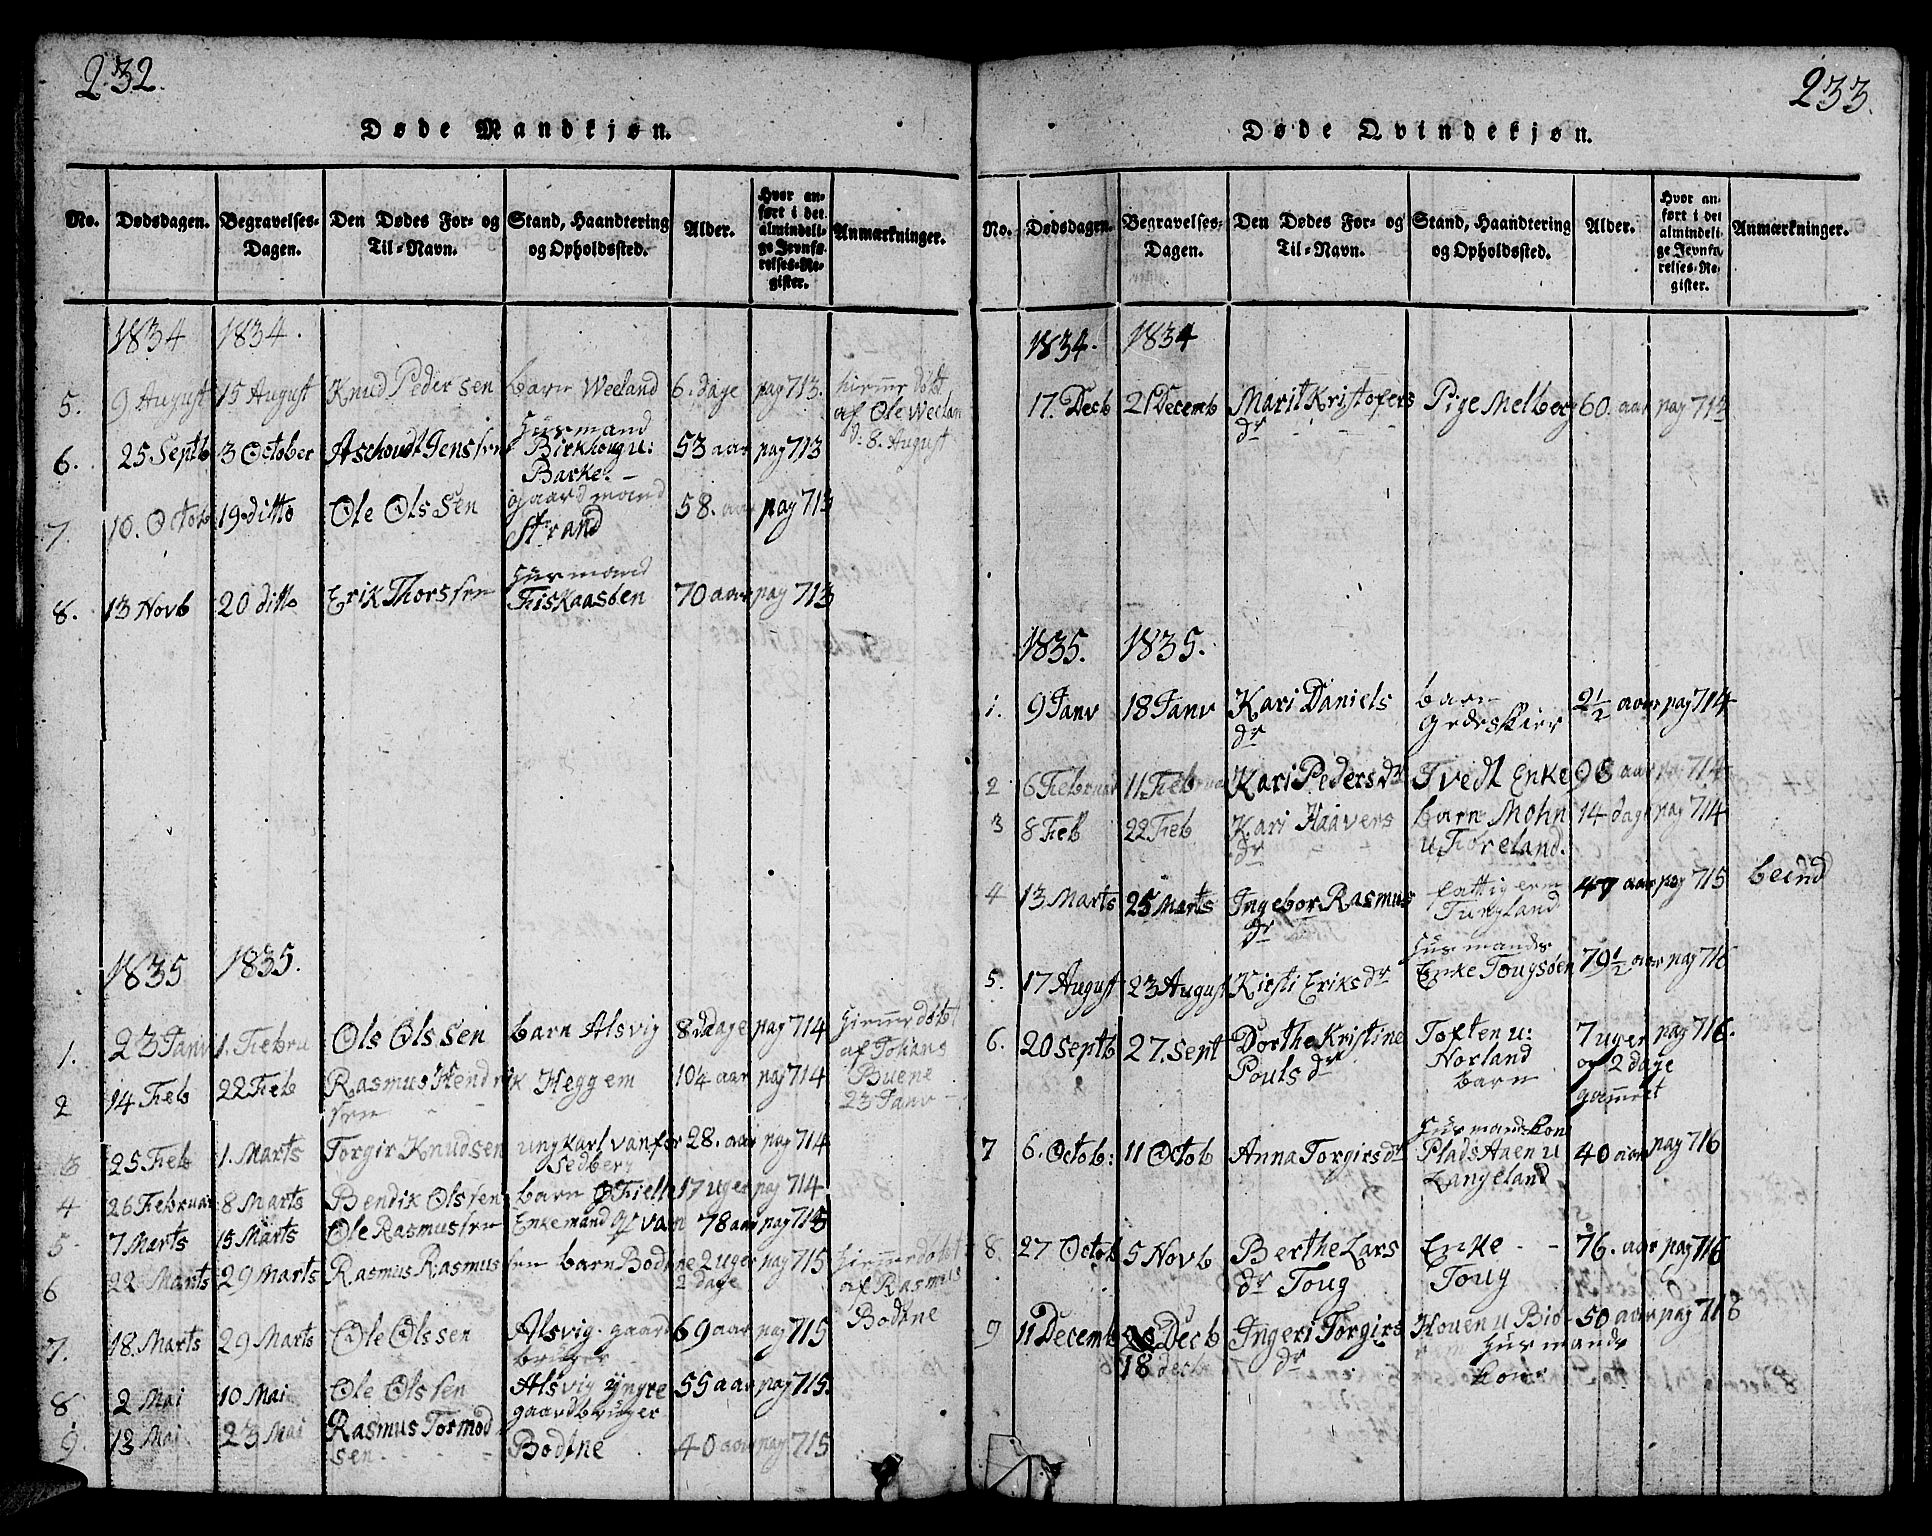 232.
Døde Mandkjøn.
No. Dødsdagen. Begravelses-Dagen. Den Dødes For- og Til-Navn. Stand, Haandtering og Opholdssted. Alder. Hvor anført i det almindelige Jevnførelses-Register. Anmærkninger.
1834 1834.
5. 9 August 15 August Knud Pedersen barn Weeland 6. dage pag 713. hiemme døbt
af Ole Weelan
d: 8. August
Huusmand
6. 25 Septb 3 October Aschoudt Jenssen Birkhoug u: 53 aar pag 713
Barke.
gaardmand
7. 10. Octob 19. ditto Ole Olssen Strand 58. aar pag 713
Huusmand
8. 13 Novb 20 ditto Erik Thorssen Fiskaasøen 70 aar pag 713
1835 1835.
1. 23 Janv 1. Febru Ols Olssen barn Alsvig 8 dage pag 714 hiemme døbt
af Johans
2 14 Feb 22 Feb Rasmus Hendrik Heggem 104 aar pag 714 Buene
sen 23 Janv
3 25 Feb 1. Marts Torgir Knudsen ungkarl vanfør 28. aar pag 714
Sedberg
4 26 Februar 8 Marts Bendik Olssen barn Fielle 17 uger pag 714
5 7 Marts 15 Marts Ole Rasmussen Enkemand 78 aar pag 715
6 22 Marts 29 Marts Rasmus Rasmussen barn Bodøne 2 uger pag 715 hiemmedøbt
2 dage af Rasmus
Bodøne
7. 18. Marts 29 Marts Ole Olssen Alsvig. gaard 69 aar pag 715
bruger
8 2 Mai 10 Mai Ole Olssen Alsvig yngre 55 aar pag 715.
gaardbruger
9. 13 Mai 23 Mai Rasmus Tormod Bodøne 40 aar pag 715
sen
233.
Døde Qvindekjøn.
No. Dødsdagen. Begravelses-Dagen. Den Dødes For- og Til-Navn. Stand, Haandtering og Opholdssted. Alder. Hvor anført i det almindelige Jevnførelses-Register. Anmærkninger.
1834. 1834
17. Decb 21 Decemb Marit Kristofers Pige Melberg 60. aar pag 713
dr
1835. 1835.
1. 9 Janv 18 Janv Kari Daniels barn 2½ aar pag 714
dr Grdeskier
2 6 Februar 11 Februa Kari Peders dr Tvedt Enke 98 aar pag 714
3 8 Feb 22 Feb Kari Haavers barn Mohn 14 dage pag 714
dr u. Føreland.
4 13 Marts 25 Marts Ingebor Rasmus fattig 47 aar pag 715 beend
dr Tungland
Huusmands
5. 17 August 23 August Kirsti Eriks dr Enke Tougsøen 79½ aar pag 716
6. 20 Septb 27. Sept Dorthe Kristine Toften u: 7 uger pag 716.
Pouls dr Norland og 2 dage
barn gammelt
Huusmandskone
7 6. Octob: 11 Octob Anna Torgirs dr Plads Aaen u 40 aar pag 716
Langeland
8. 27 Octob 5 Novb Berthe Lars Enke 76. aar pag 716
dr Toug Toug
9 11 Decemb Decb Ingeri Torgirs Houen u Bio- 50 aar pag 716
18 decb dr Huusmands
kone